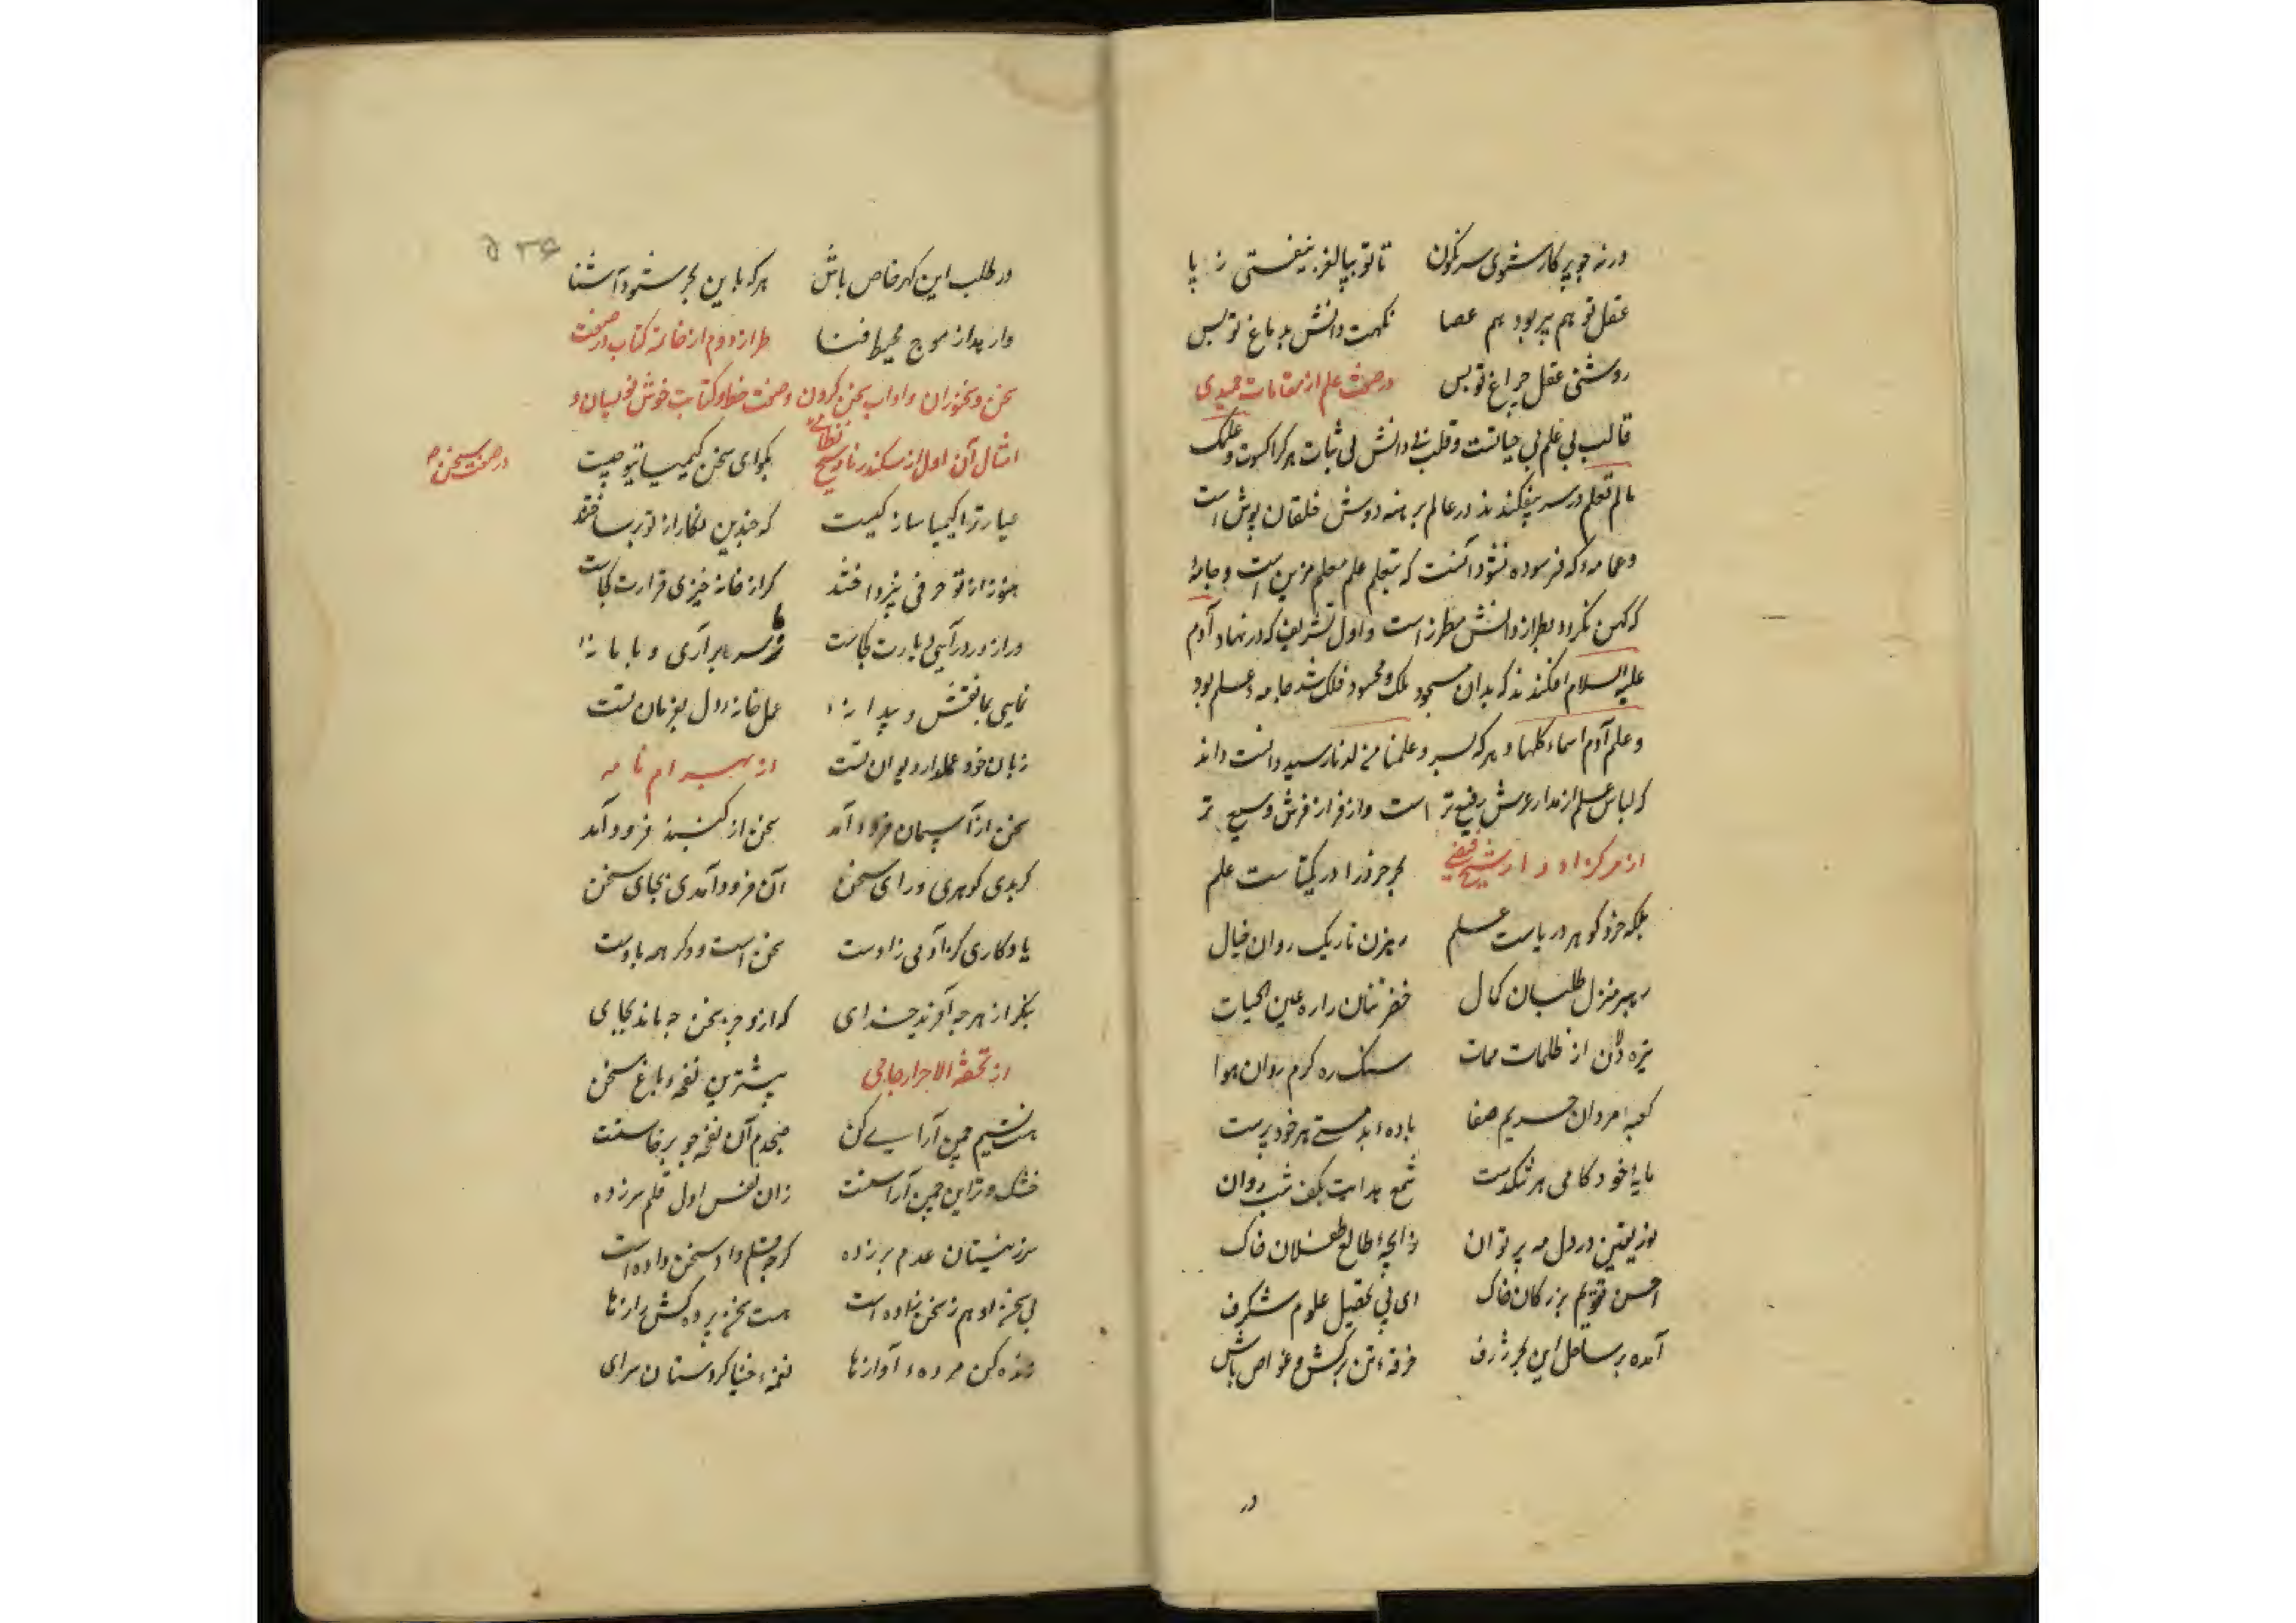 ورنه چو پرکار شوی سرنکون تا تو بپالغز نیفتی ز پا
عقل تو هم پیر بود هم عصا نکهت دانش بدماغ تو بس
روشنی عقل چراغ تو بس در صفت علم از مقامات حمیدی
قالب بی علم بی حیاتست و قلب بی دانش بی ثبات هر کرا کسوت و علمک
مالم تعلم در سر بیفکندند در عالم برهنه دوش خلقان پوش است
و عمامه که فرسوده نشود آنست که بتعلم علم معلم مزین است و جامهٔ
که کهن نکردد بطراز دانش مطرز است و اول تشریف که در نهاد آدم
علیه السلام افکندند که بدان مسجود ملک و محسود فلک شد جامهء علم بود
و علم آدم اسماء کلها و هر که بسر و علمنا من لدنا رسید دانست داند
که لباس علم از مدار عرش رفیع تر است و از فراز فرش وسیع تر
از مرکز ادوار شیخ فیضی بحر خرد را در یکتاست علم
بلکه خرد کوهر دریاست علم رهزن تاریک روان خیال
رهبر منزل طلبان کمال خضر تنان را ره عین الحیات
تیره دلان از ظلمات ممات سنک ره کرم روان هوا
کعبهء مردان حریم صفا بادهء بدمستی هر خود پرست
مایهٔ خود کامی هر تنکدست شمع هدایت بکف شب روان
نور یقین در دل مه پرتوان زایجهٔ طالع طفلان خاک
احسن تقویم بزرکان خاک ای پی تحصیل علوم شکرف
آمده بر ساحل این بحر ژرف خرقهء تن برکش و غواص باش
در
۵۳۶
در طلب این کهر خاص باش هر که باین بحر شود آشنا
وارهد از موج محیط فنا طراز دوم از خاتمه کتاب در صفت
سخن و سخنوران و اداب سخن کردن و صفت خط و کتابت خوش نویسان و
امثال آن اول از سکندر نامه شیخ نظامی بکو ای سخن کیمیای تو چیست
در صفت سخن
عیار ترا کیمیا ساز کیست که چندین نکار از تو برساختند
هنوز از تو حرفی نپرداختند کر از خانه خیزی قرارت کجاست
ور از در درآیی دیارت کجاست ز ما سر برآری و با ما نهٔ
نمایی بما نقش و پیدا نهٔ عمل خانهء دل بفرمان تست
زبان خود عملدار دیوان تست از بهرام نامه
سخن از آسمان فرود آمد سخن از کنبد فرود آمد
کر بدی کوهری ورای سخن آن فرود آمدی بجای سخن
یادکاری کز آدمی زادست سخن است و دکر همه بادست
بنکر از هر چه آفرید خدای که ازو جز سخن چه ماند بجای
از تحفة الاحرار جامی پیشترین نفحهء باغ سخن
هست نسیم چمن آرای کن صبحدم آن نفحه چو برخاستست
خشک و تر این چمن آراستست زان نفس اول قلم سر زده
سر ز نیستان عدم بر زده کرچه قلم داد سخن داده است
بی سخن او هم ز سخن زاده است هست سخن پرده کش رازها
زنده کن مردهء آوازها نغمهء خنیاکر دستان سرای